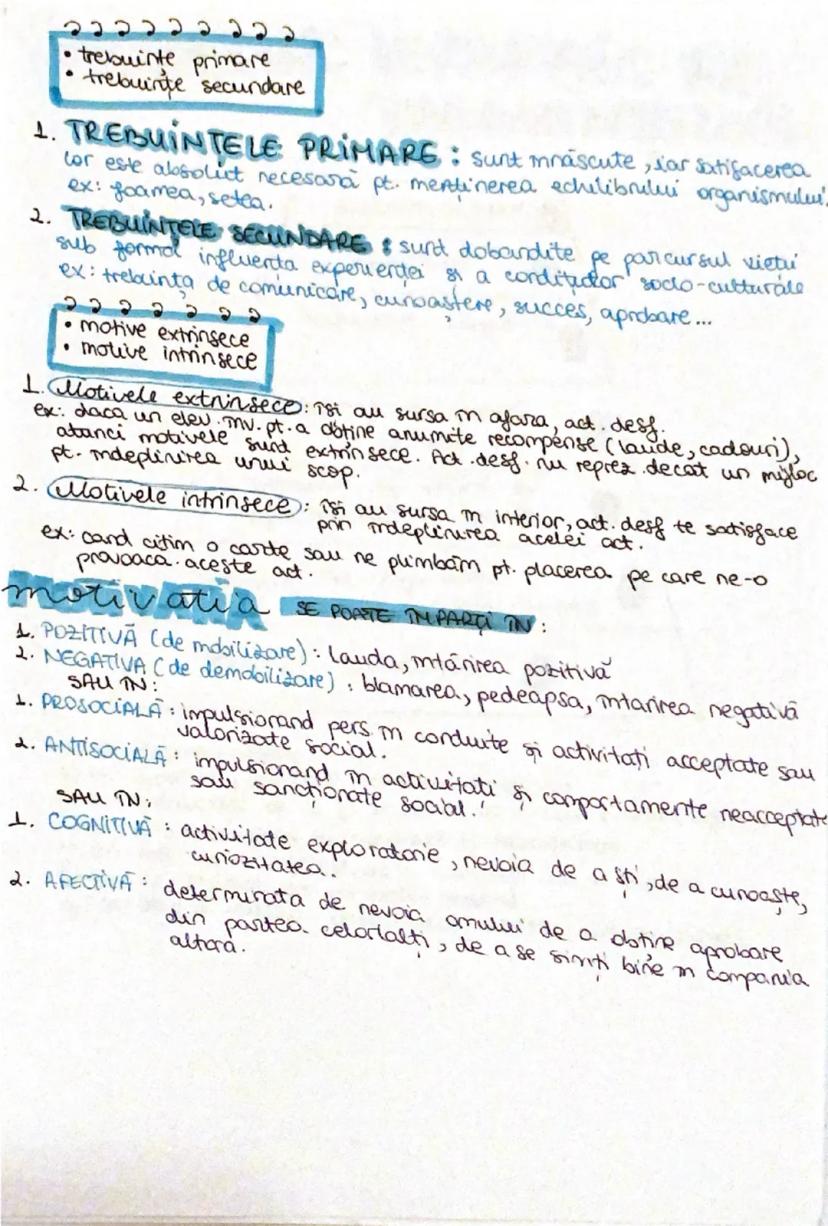 • trebuințe primare
• trebuințe secundare
1. TREBUINȚELE PRIMARE : sunt înăscute, iar satisfacerea
lor este absolut necesară pt. menținerea echilibrului organismului.
ex: foamea, setea.
2. TREBUINȚELE SECUNDARE : sunt dobandite pe parcursul vieții
sub forma influența experienței și a condițiilor socio-culturale
ex: trebuința de comunicare, cunoaștere, succes, aprobare...
• motive extrinsece
• motive intrinsece
1. Motivele extrinsece : își au sursa în afara, act. desf.
ex: daca un elev. înv. pt. a obține anumite recompense (laude, cadouri),
atunci motivele sunt extrinsece. Act. desf. nu reprez. decat un mijloc
pt. indeplinirea unui scop.
2. Motivele intrinsece : își au sursa în interior, act. desf te satisface
prin indeplinirea acelei act.
ex: cand citim o carte sau ne plimbăm pt. placerea pe care ne-o
provoaca aceste act.
motivatia SE POATE ÎMPĂRȚI ÎN :
1. POZITIVĂ (de mobilizare) : lauda, întărirea pozitivă
2. NEGATIVA (de demobilizare) : blamarea, pedeapsa, intarirea negativă
SAU ÎN:
1. PROSOCIALĂ : impulsionand pers. în conduite și activitați acceptate sau
valorizate social.
2. ANTISOCIALĂ : impulsionand în activitati și comportamente neacceptate
sau sancționate social.
SAU ÎN:
1. COGNITIVĂ : activitate exploratorie, nevoia de a ști, de a cunoaște,
curiozitatea.
2. AFECTIVĂ : determinata de nevoia omului de a obține aprobare
din partea celorlalți, de a se simți bine în compania
altora.